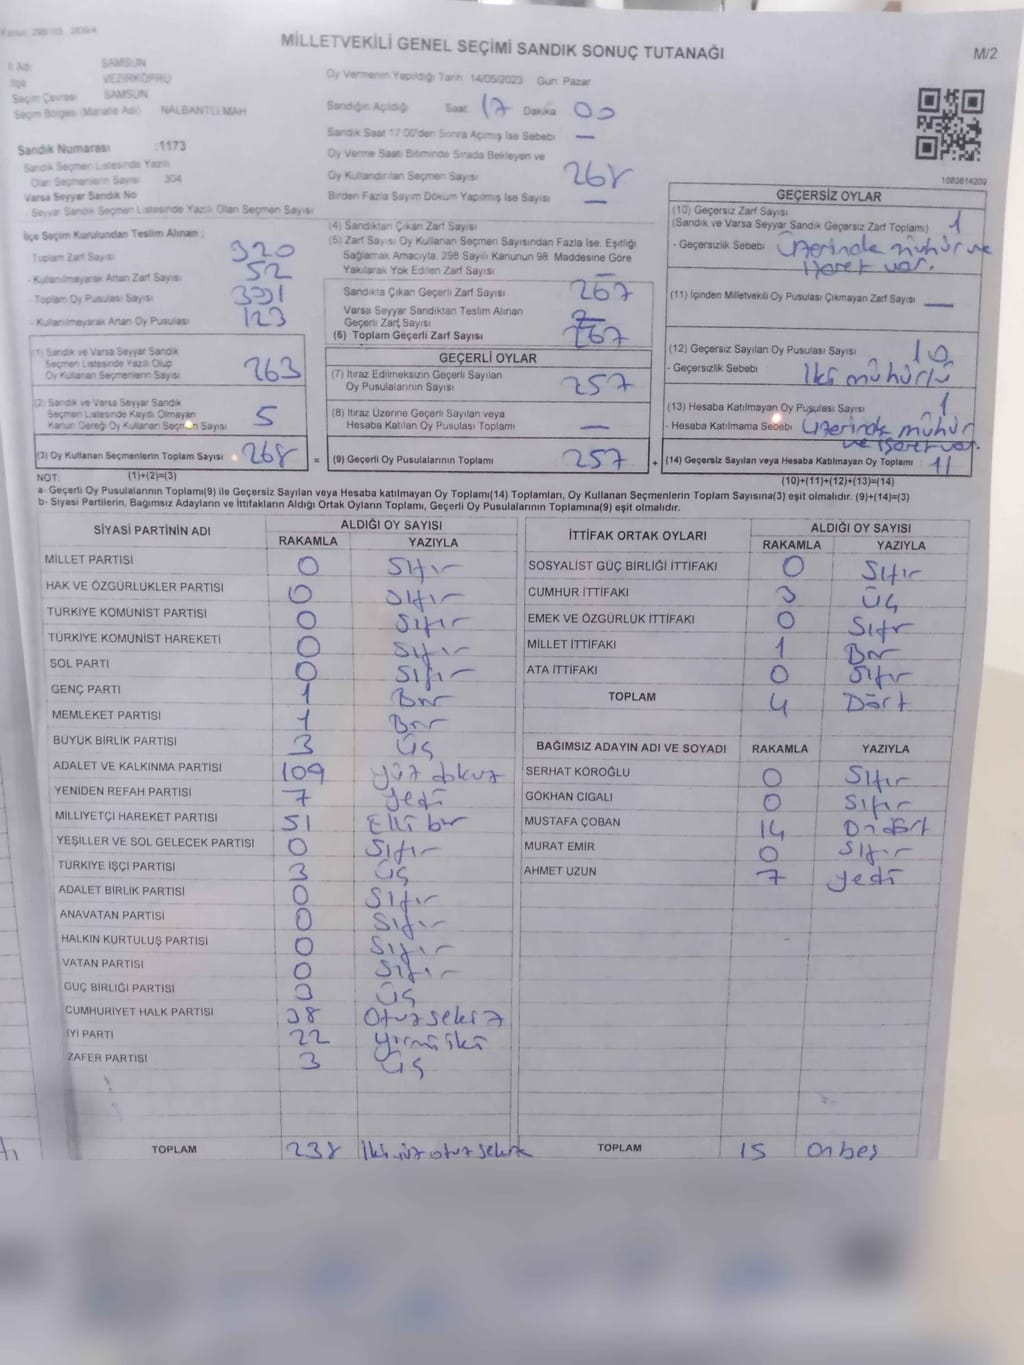 MİLLETVEKİLİ GENEL SEÇİMİ SANDIK SONUÇ TUTANAĞI
M/2
İl Adı SAMSUN
İlçe VEZİRKÖPRÜ
Seçim Çevresi SAMSUN
Seçim Bölgesi (Mahalle Adı) NALBANTLI MAH
Oy Vermenin Yapıldığı Tarih 14/05/2023 Gün: Pazar
Sandığın Açıldığı Saat 17 Dakika 00
Sandık Saat 17:00'den Sonra Açılmış İse Sebebi —
Oy Verme Saati Bitiminde Sırada Bekleyen ve
Oy Kullandırılan Seçmen Sayısı 268
Birden Fazla Sayım Döküm Yapılmış İse Sayısı —
Sandık Numarası :1173
- Sandık Seçmen Listesinde Yazılı
Olan Seçmenlerin Sayısı 304
Varsa Seyyar Sandık No
- Seyyar Sandık Seçmen Listesinde Yazılı Olan Seçmen Sayısı
İlçe Seçim Kurulundan Teslim Alınan ;
Toplam Zarf Sayısı 320
- Kullanılmayarak Artan Zarf Sayısı 52
- Toplam Oy Pusulası Sayısı
- Kullanılmayarak Artan Oy Pusulası 123
(1) Sandık ve Varsa Seyyar Sandık
Seçmen Listesinde Yazılı Olup
Oy Kullanan Seçmenlerin Sayısı 263
(2) Sandık ve Varsa Seyyar Sandık
Seçmen Listesinde Kayıtlı Olmayan
Kanun Gereği Oy Kullanan Seçmen Sayısı 5
(3) Oy Kullanan Seçmenlerin Toplam Sayısı 268 =
(4) Sandıktan Çıkan Zarf Sayısı
(5) Zarf Sayısı Oy Kullanan Seçmen Sayısından Fazla İse, Eşitliği
Sağlamak Amacıyla, 298 Sayılı Kanunun 98 Maddesine Göre
Yakılarak Yok Edilen Zarf Sayısı —
Sandıkta Çıkan Geçerli Zarf Sayısı 267
Varsa Seyyar Sandıktan Teslim Alınan
Geçerli Zarf Sayısı
(6) Toplam Geçerli Zarf Sayısı 267
GEÇERLİ OYLAR
(7) İtiraz Edilmeksizin Geçerli Sayılan
Oy Pusulalarının Sayısı 257
(8) İtiraz Üzerine Geçerli Sayılan veya
Hesaba Katılan Oy Pusulası Toplamı —
(9) Geçerli Oy Pusulalarının Toplamı 257 +
1083614209
GEÇERSİZ OYLAR
(10) Geçersiz Zarf Sayısı
(Sandık ve Varsa Seyyar Sandık Geçersiz Zarf Toplamı) 1
- Geçersizlik Sebebi Üzerinde mühür ve
işaret var.
(11) İçinden Milletvekili Oy Pusulası Çıkmayan Zarf Sayısı —
(12) Geçersiz Sayılan Oy Pusulası Sayısı
- Geçersizlik Sebebi İki mühürlü
(13) Hesaba Katılmayan Oy Pusulası Sayısı 1
- Hesaba Katılmama Sebebi Üzerinde mühür
ve işaret var.
(14) Geçersiz Sayılan veya Hesaba Katılmayan Oy Toplamı 11
NOT: (1)+(2)=(3)
(10)+(11)+(12)+(13)=(14)
a- Geçerli Oy Pusulalarının Toplamı(9) ile Geçersiz Sayılan veya Hesaba katılmayan Oy Toplamı(14) Toplamları, Oy Kullanan Seçmenlerin Toplam Sayısına(3) eşit olmalıdır. (9)+(14)=(3)
b- Siyasi Partilerin, Bağımsız Adayların ve İttifakların Aldığı Ortak Oyların Toplamı, Geçerli Oy Pusulalarının Toplamına(9) eşit olmalıdır.
SİYASİ PARTİNİN ADI ALDIĞI OY SAYISI
RAKAMLA YAZIYLA
MİLLET PARTİSİ 0 Sıfır
HAK VE ÖZGÜRLÜKLER PARTİSİ 0 Sıfır
TÜRKİYE KOMÜNİST PARTİSİ 0 Sıfır
TÜRKİYE KOMÜNİST HAREKETİ 0 Sıfır
SOL PARTİ 0 Sıfır
GENÇ PARTİ 1 Bir
MEMLEKET PARTİSİ 1 Bir
BÜYÜK BİRLİK PARTİSİ 3 Üç
ADALET VE KALKINMA PARTİSİ 109 yüz dokuz
YENİDEN REFAH PARTİSİ 7 yedi
MİLLİYETÇİ HAREKET PARTİSİ 51 Elli bir
YEŞİLLER VE SOL GELECEK PARTİSİ 0 Sıfır
TÜRKİYE İŞÇİ PARTİSİ 3 Üç
ADALET BİRLİK PARTİSİ 0 Sıfır
ANAVATAN PARTİSİ 0 Sıfır
HALKIN KURTULUŞ PARTİSİ 0 Sıfır
VATAN PARTİSİ 0 Sıfır
GÜÇ BİRLİĞİ PARTİSİ Üç
CUMHURİYET HALK PARTİSİ 38 Otuz sekiz
İYİ PARTİ 22 yirmi iki
ZAFER PARTİSİ 3 Üç
TOPLAM 238 İki yüz otuz sekiz
İTTİFAK ORTAK OYLARI ALDIĞI OY SAYISI
RAKAMLA YAZIYLA
SOSYALİST GÜÇ BİRLİĞİ İTTİFAKI 0 Sıfır
CUMHUR İTTİFAKI 3 Üç
EMEK VE ÖZGÜRLÜK İTTİFAKI 0 Sıfır
MİLLET İTTİFAKI 1 Bir
ATA İTTİFAKI 0 Sıfır
TOPLAM 4 Dört
BAĞIMSIZ ADAYIN ADI VE SOYADI RAKAMLA YAZIYLA
SERHAT KÖROĞLU 0 Sıfır
GÖKHAN CIGALI 0 Sıfır
MUSTAFA ÇOBAN
MURAT EMİR 0 Sıfır
AHMET UZUN 7 yedi
TOPLAM 15 Onbeş